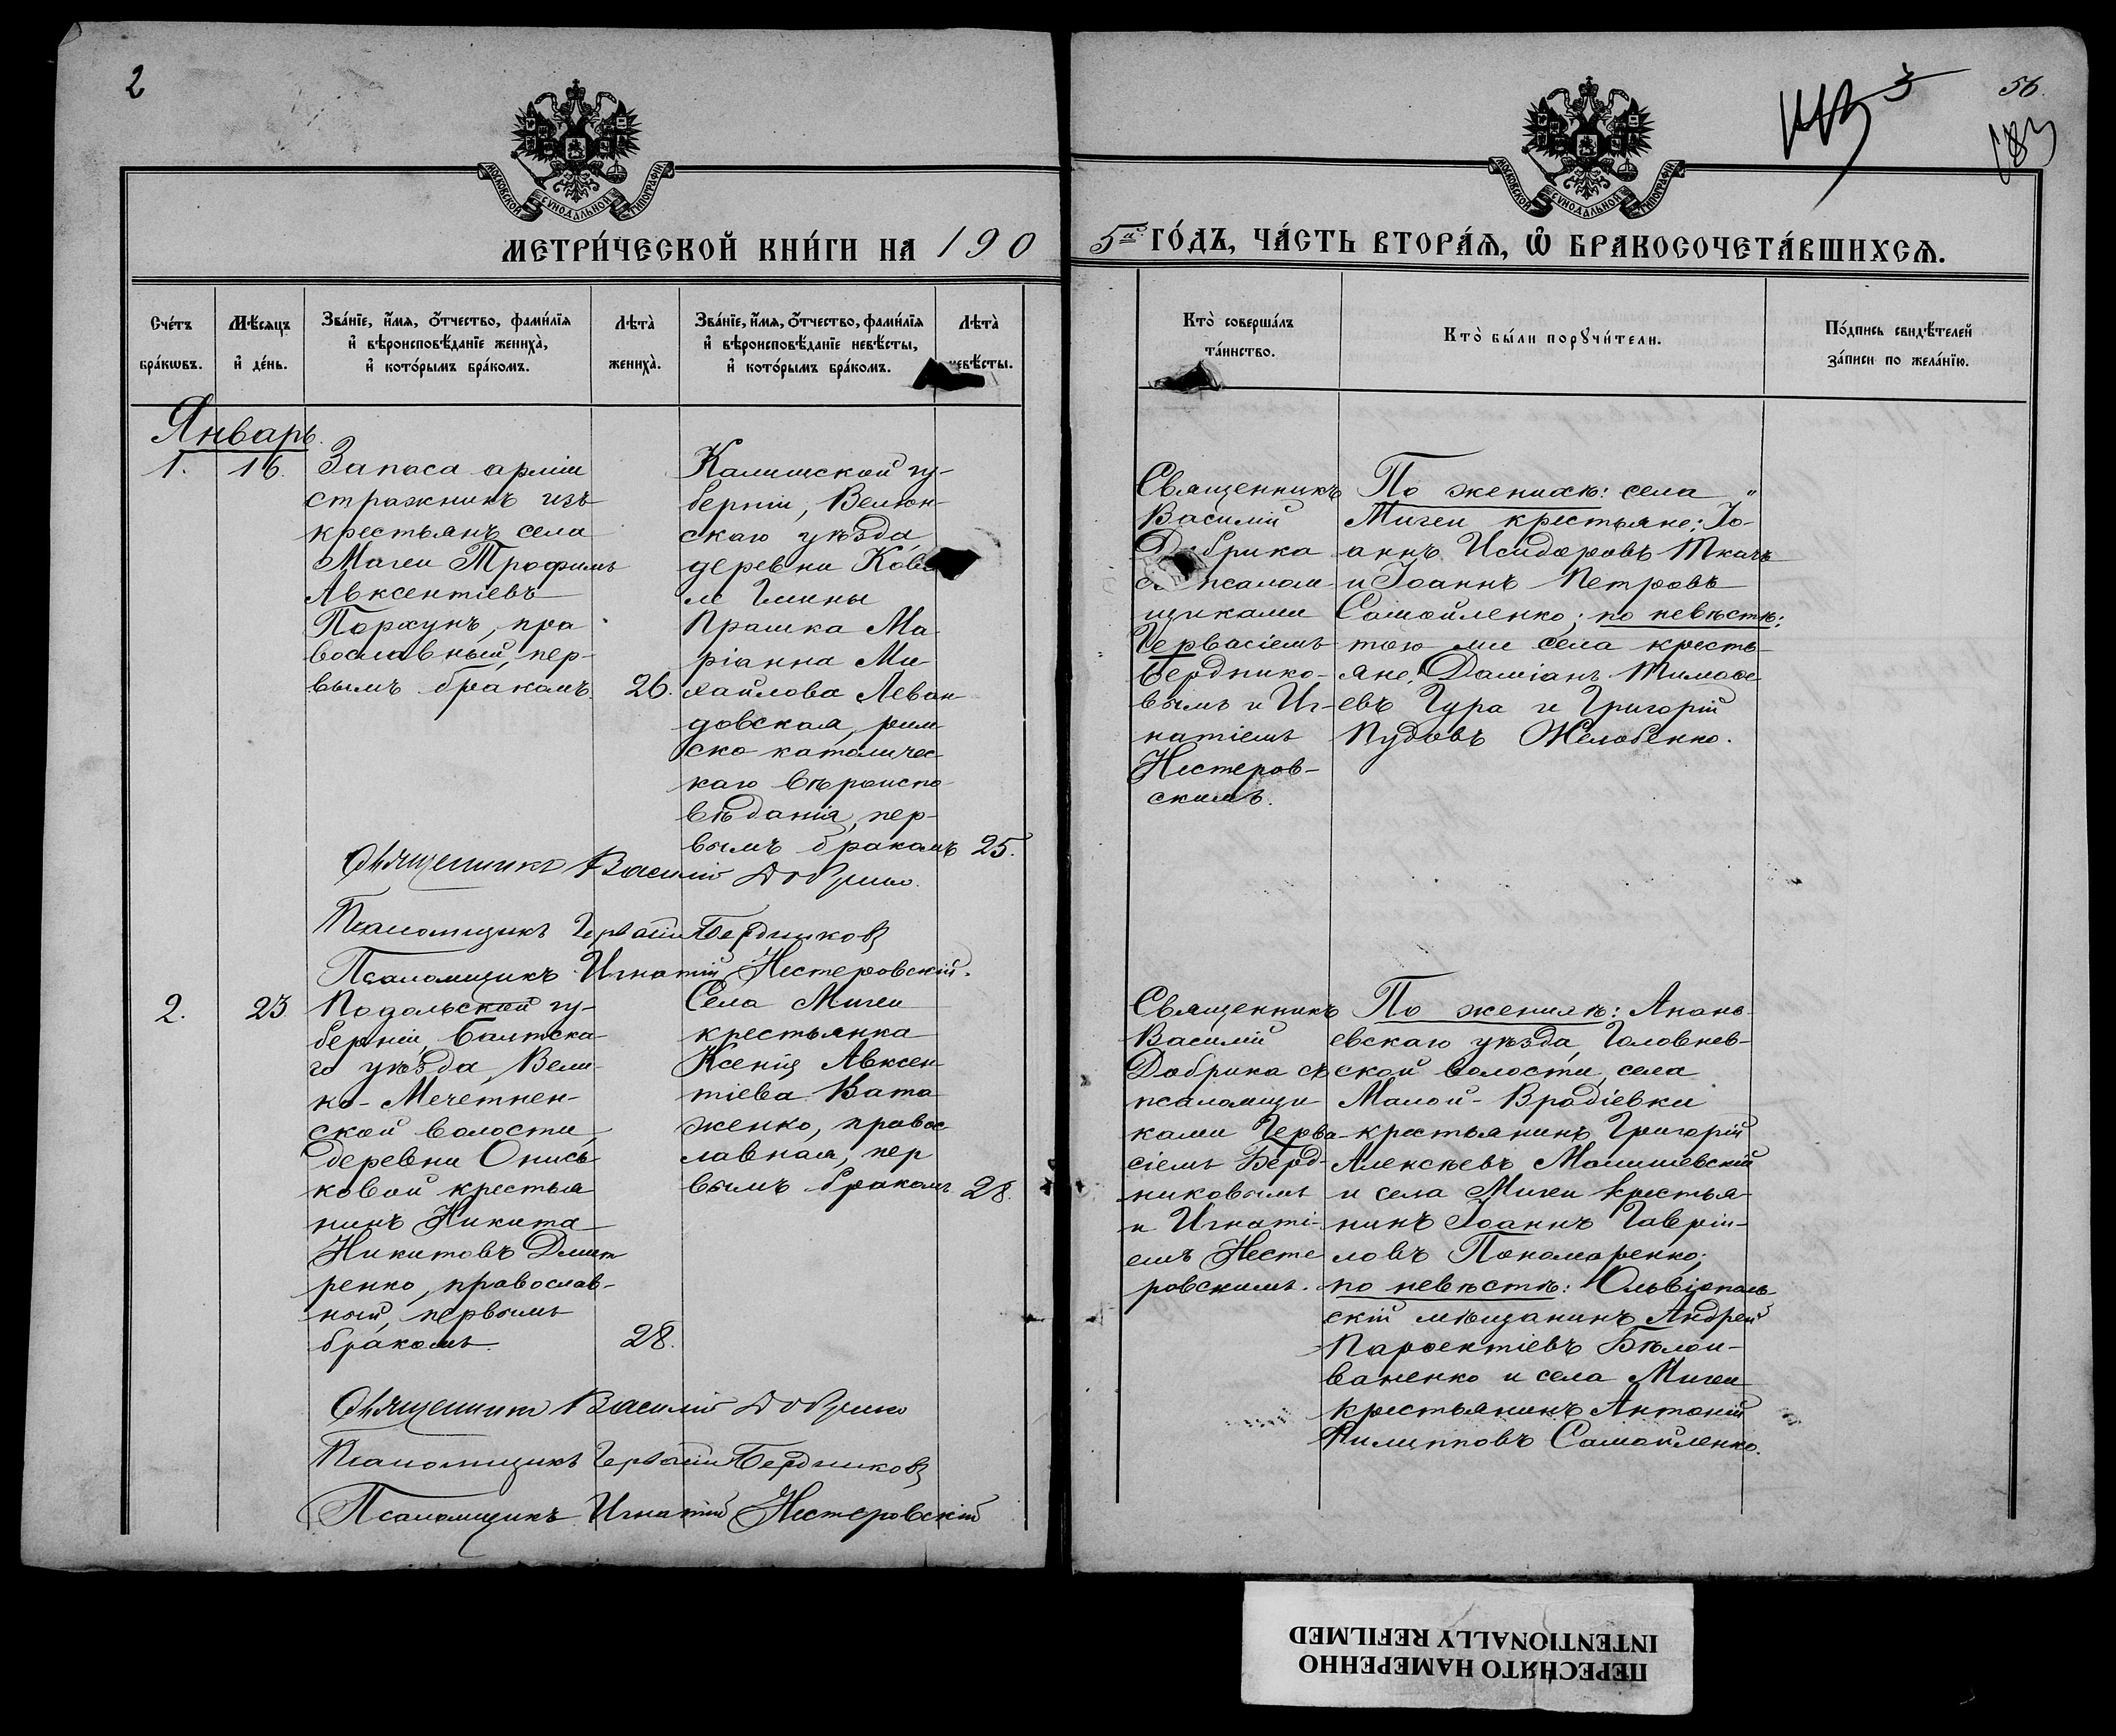 2
56
183
МОСКОВСКОЙ СУНОДАЛЬНОЙ ТИПОГРАФІИ
МОСКОВСКОЙ СУНОДАЛЬНОЙ ТИПОГРАФІИ
МЕТРИ́ЧЕСКОЙ КНИ́ГИ НА 190
5а ГО́ДЪ, ЧА́СТЬ ВТОРА́Ѧ, Ѡ҆ БРАКОСОЧЕТА́ВШИХСѦ.
Сче́тъ бра́кωвъ.
Мѣ́сяцъ и҆ де́нь.
Зва́нїе, и҆́мя, о҆́тчество, фами́лїя
и҆ вѣроисповѣ́данїе жениха̀,
и҆ кото́рымъ бра́комъ.
Лѣта̀
жениха̀.
Зва́нїе, и҆́мя, о҆́тчество, фами́лїя
и҆ вѣроисповѣ́данїе невѣ́сты,
и҆ кото́рымъ бра́комъ.
Лѣта̀
невѣ́сты.
Кто̀ соверша́лъ
та́инство.
Кто̀ бы́ли порꙋчи́тели.
По́дпись свидѣ́телей
за́писи по жела́нїю.
Январь.
1.
16.
Запаса арміи
стражникъ изъ
крестьянъ села
Мигеи Трофимъ
Авксентіевъ
Порхунъ, пра
вославный, пер-
вымъ бракомъ.
26.
Калишской гу-
берніи, Велюн-
скаго уѣзда
деревни Кова
ле Гмины
Прашка Ма
ріанна Ми
хайлова Леван
довская, рим
ско католичес
каго вѣроиспо
вѣданія, пер-
вымъ бракомъ
25.
Священникъ
Василій
Добрика
съ псалом-
щиками
Гервасіемъ
Берднико-
вымъ и Иг-
натіемъ
Нестеров-
скимъ.
По женихѣ: села
Мигеи крестьяне: Іо-
аннъ Исидоровъ Ткачъ
и Іоаннъ Петровъ
Самойленко; по невѣстѣ:
того же села кресть-
яне: Даміанъ Тимофе-
евъ Гура и Григорій
Пудовъ Желобенко.
Священникъ Василій Добрика
Псаломщикъ Гервасій Бердниковъ
Псаломщикъ Игнатій Нестеровскій.
2.
23.
Подольской гу-
берніи, Балтска-
го уѣзда, Вели-
ко-Мечетнен-
ской волости,
деревни Онись
ковой крестья
нинъ Никита
Никитовъ Дмит
ренко, православ-
ный, первымъ
бракомъ.
28.
Села Мигеи
крестьянка
Ксенія Авксен
тіева Ката
женко, правос
лавная, пер
вымъ бракомъ
28.
Священникъ
Василій
Добрика съ
псаломщи
ками Герва-
сіемъ Берд-
никовымъ
и Игнаті-
емъ Несте
ровскимъ.
По женихѣ: Анань-
евскаго уѣзда, Головнев-
ской волости, села
Малой-Врадіевки
крестьянинъ Григорій
Алексѣевъ Малишевскій
и села Мигеи крестья-
нинъ Іоаннъ Гаврiи-
ловъ Пономаренко;
по невѣстѣ: Ольвіополь-
скій мѣщанинъ Андрей
Парфектіевъ Бѣлои-
ваненко и села Мигеи
крестьянинъ Антоній
Филипповъ Самойленко.
Священникъ Василій Добрика
Псаломщикъ Гервасій Бердниковъ
Псаломщикъ Игнатій Нестеровскій
ПЕРЕСНЯТО НАМЕРЕННО
INTENTIONALLY REFILMED